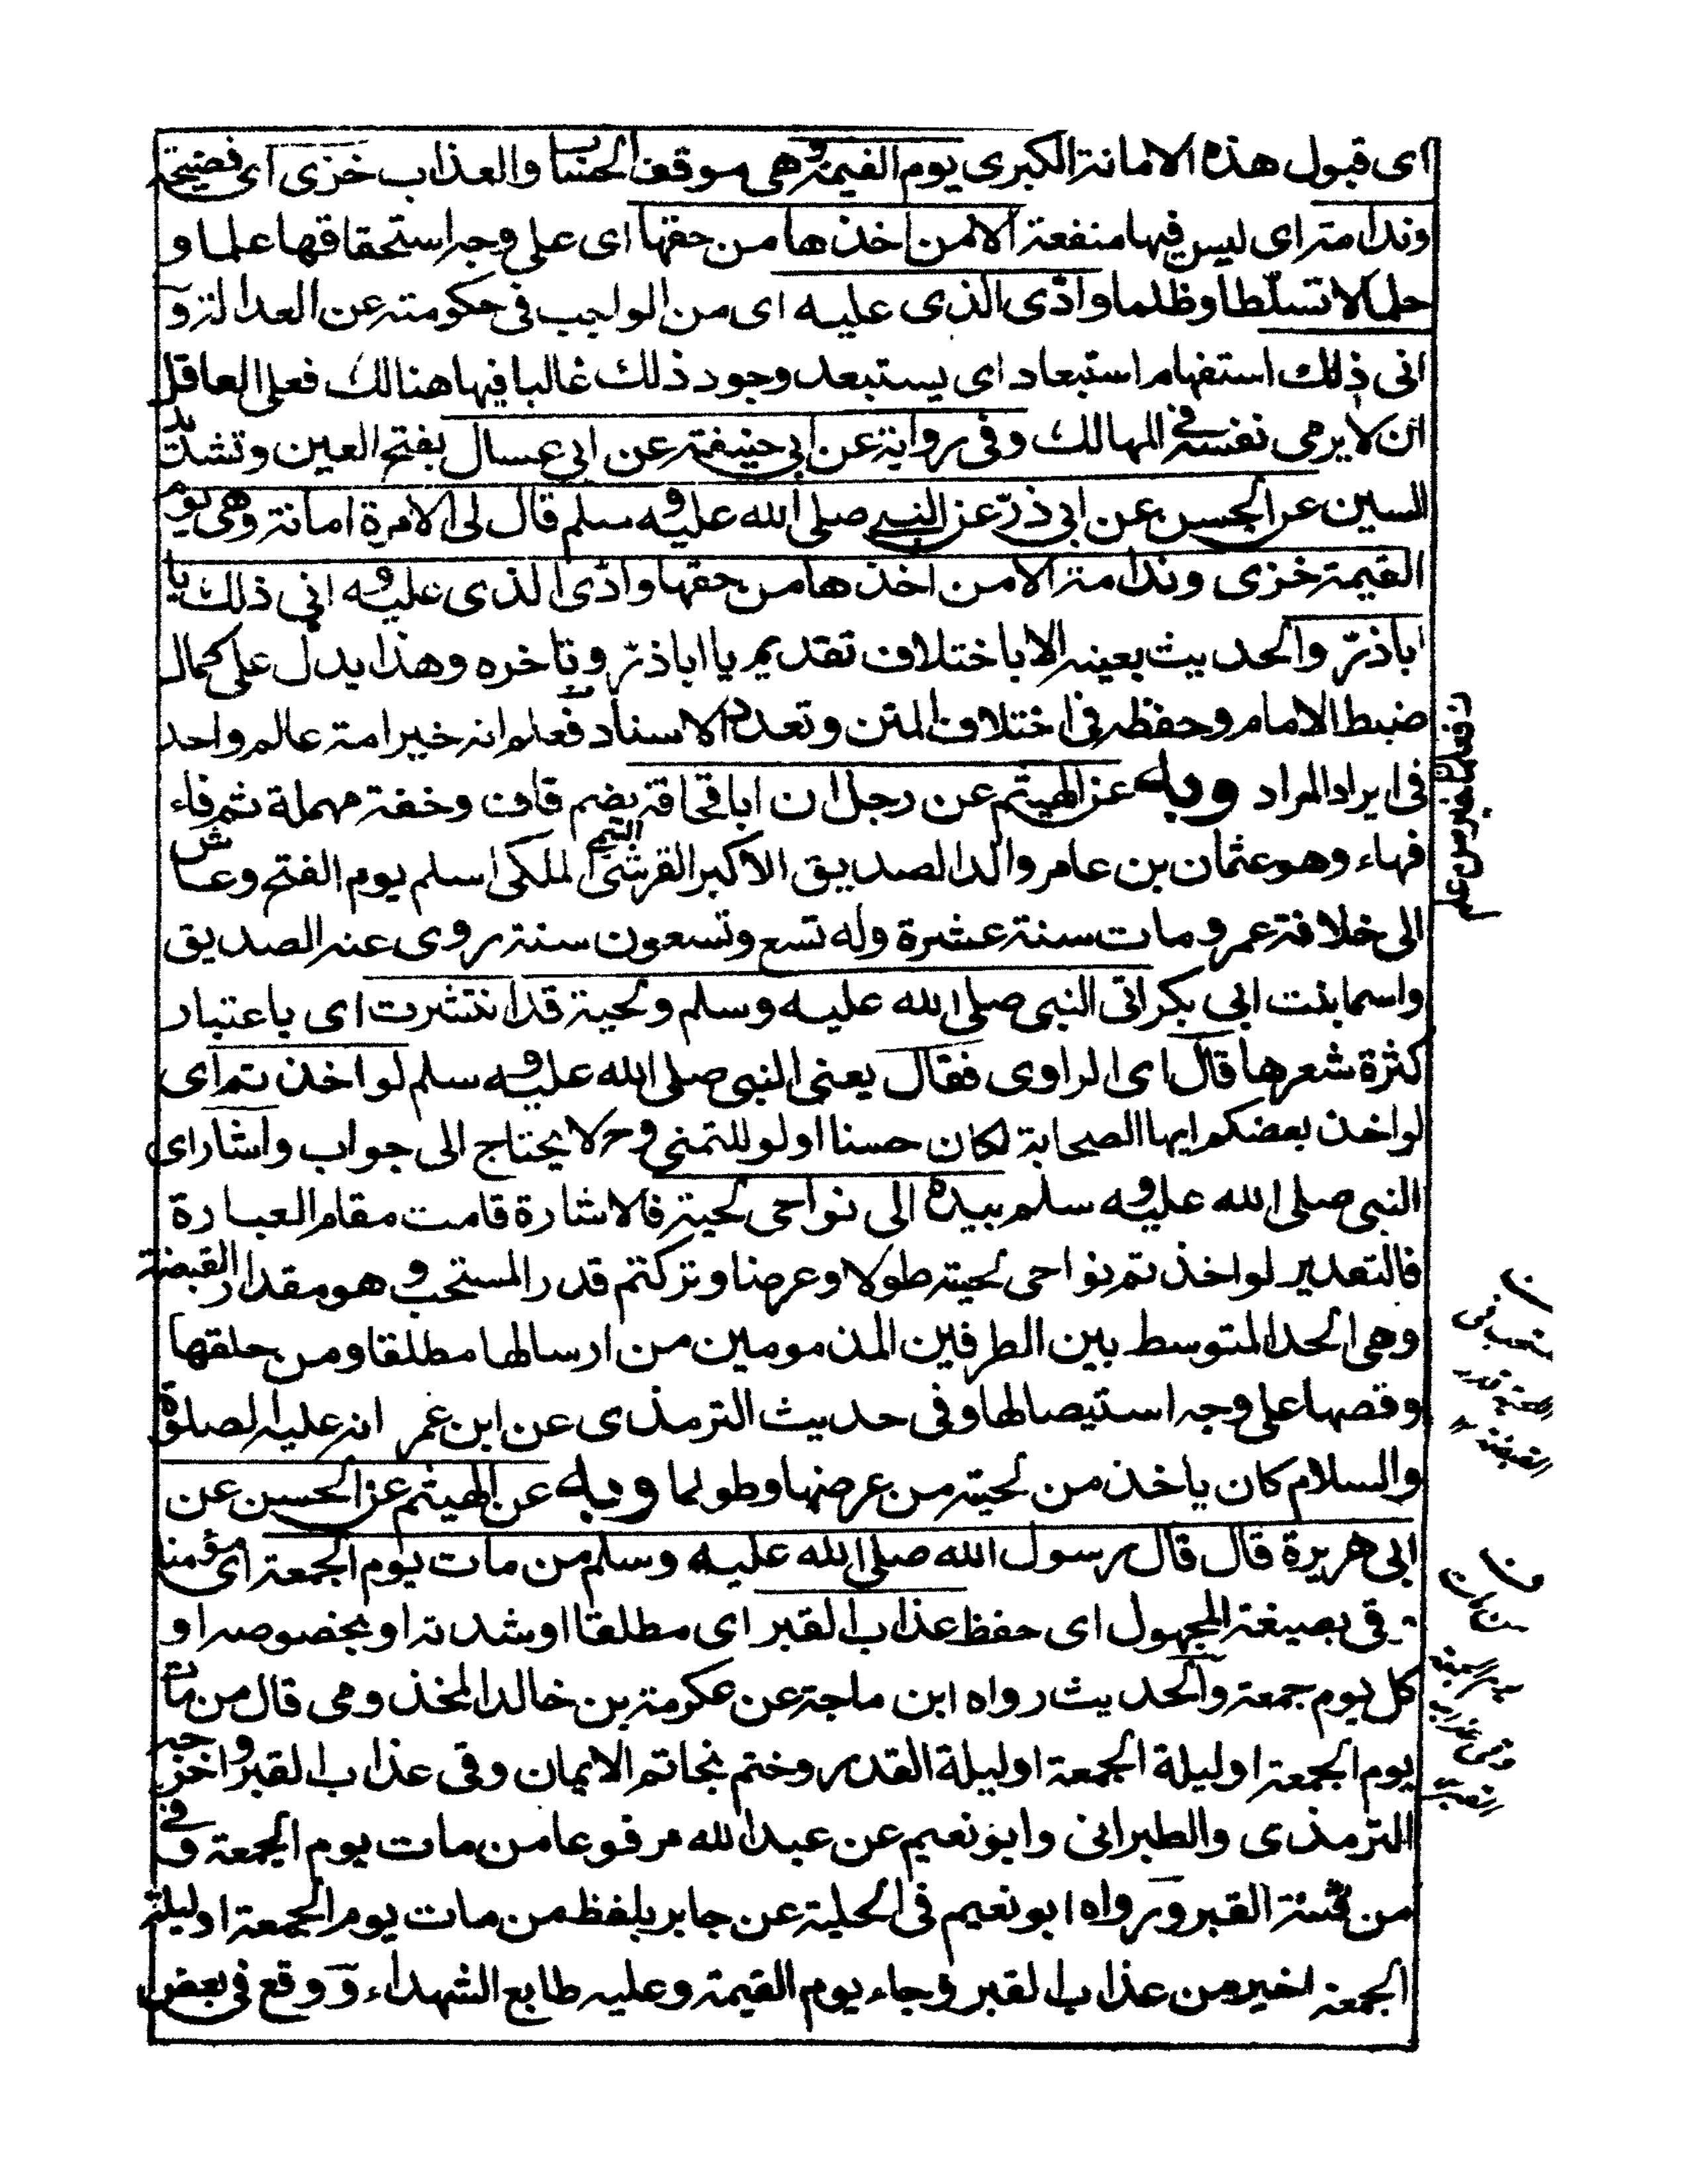 اى قبول هذه الامانة الكبرى يوم القيمة وهى موقف الحساب والعذاب خزى اى فضيحة
وندامة اى ليس فيها منفعة الا لمن اخذها من حقها اى على وجه استحقاقها علما و
حلما لا تسلطا وظلما وادّى الذى عليه اى من الواجب فى حكومته عن العدالة و
انى ذلك استفهام استبعاد اى يستبعد وجود ذلك غالبا فيها هنالك فعلى العاقل
ان لا يرمى نفسه فى المهالك وفى رواية عن ابى حنيفة عن ابى عسال بفتح العين وتشديد
السين عن الحسن عن ابى ذرّ عن النبى صلى الله عليه وسلم قال لى الامرة امانة وهى يوم
القيمة خزى وندامة الا من اخذها من حقها وادّى الذى عليه وانى ذلك يا
اباذرّ والحديث بعينه الا باختلاف تقديم يا اباذرّ وتاخره وهذا يدل على كمال
ضبط الامام وحفظه فى اختلاف المتن وتعدد الاسناد فعلم انه خير امة عالم واحد
فى ايراد المراد وبه عن الهيثم عن رجل ان اباقحافة بضم قاف وخفة مهملة ثم فاء
فهاء وهو عثمان بن عامر والد الصديق الاكبر القرشى التيمى الملكى اسلم يوم الفتح وعاش
الى خلافة عمر ومات سنة عشرة وله تسع وتسعون سنة روى عنه الصديق
واسما بنت ابى بكر اتى النبى صلى الله عليه وسلم ولحية قد انتشرت اى باعتبار
كثرة شعرها قال اى الراوى فقال يعنى النبى صلى الله عليه وسلم لو اخذتم اى
لو اخذ بعضكم ايها الصحابة لكان حسنا او لو للتمنى وح لا يحتاج الى جواب واشار اى
النبى صلى الله عليه وسلم بيده الى نواحى لحيته فالاشارة قامت مقام العبارة
فالتقدير لو اخذتم نواحى لحيته طولا وعرضا وتركتم قدر المستحب وهو مقدار القبضة
وهى الحد المتوسط بين الطرفين المذمومين من ارسالها مطلقا ومن حلقها
وقصها على وجه استيصالها وفى حديث الترمذى عن ابن عمر انه عليه الصلوة
والسلام كان ياخذ من لحيته من عرضها وطولها وبه عن الهيثم عن الحسن عن
ابى هريرة قال قال رسول الله صلى الله عليه وسلم من مات يوم الجمعة اى مؤمنا
وقى بصيغة المجهول اى حفظ عذاب القبر اى مطلقا او شدته او بخصوصه او
كل يوم جمعة والحديث رواه ابن ماجة عن عكرمة بن خالد المخذومى قال من مات
يوم الجمعة او ليلة الجمعة او ليلة القدر وختم بخاتم الايمان وقى عذاب القبر واخرجه
الترمذى والطبرانى وابو نعيم عن عبد الله مرفوعا من مات يوم الجمعة وقى
من فتنة القبر ورواه ابو نعيم فى الحلية عن جابر بلفظ من مات يوم الجمعة او ليلة
الجمعة اخير من عذاب القبر وجاء يوم القيمة وعليه طابع الشهداء ووقع فى بعض